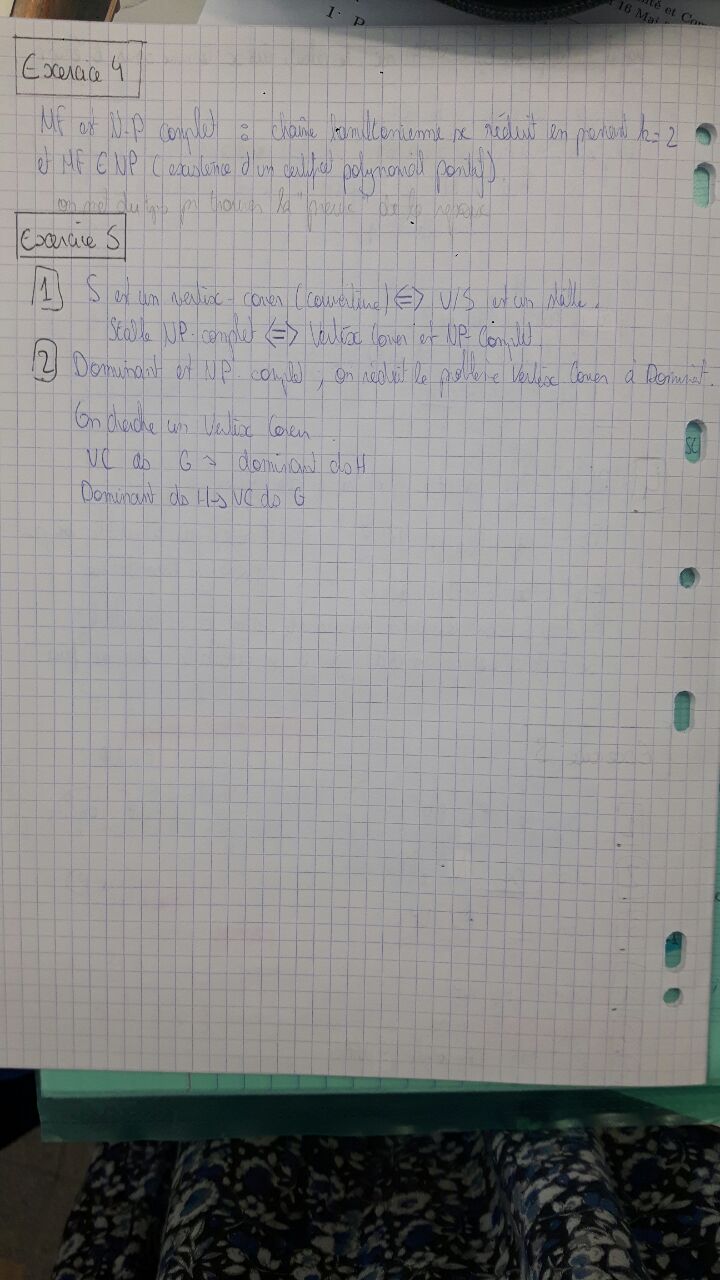 I. P
té et Con
16 Mai
Exercice 4
MF et N-P complet : chaîne hamiltonienne se réduit en prenant k=2
et MF ∈ NP (existence d'un certificat polynomial positif)
Exercice 5
1 S est un vertix-cover (couverture) <=> V/S est un stable.
Stable NP-complet <=> Vertix Cover et NP-Complet
2 Dominant et NP-complet, on réduit le problème Vertix Cover à Dominant.
On cherche un Vertix Cover.
VC ds G -> dominant ds H
Dominant ds H -> VC ds G
SC